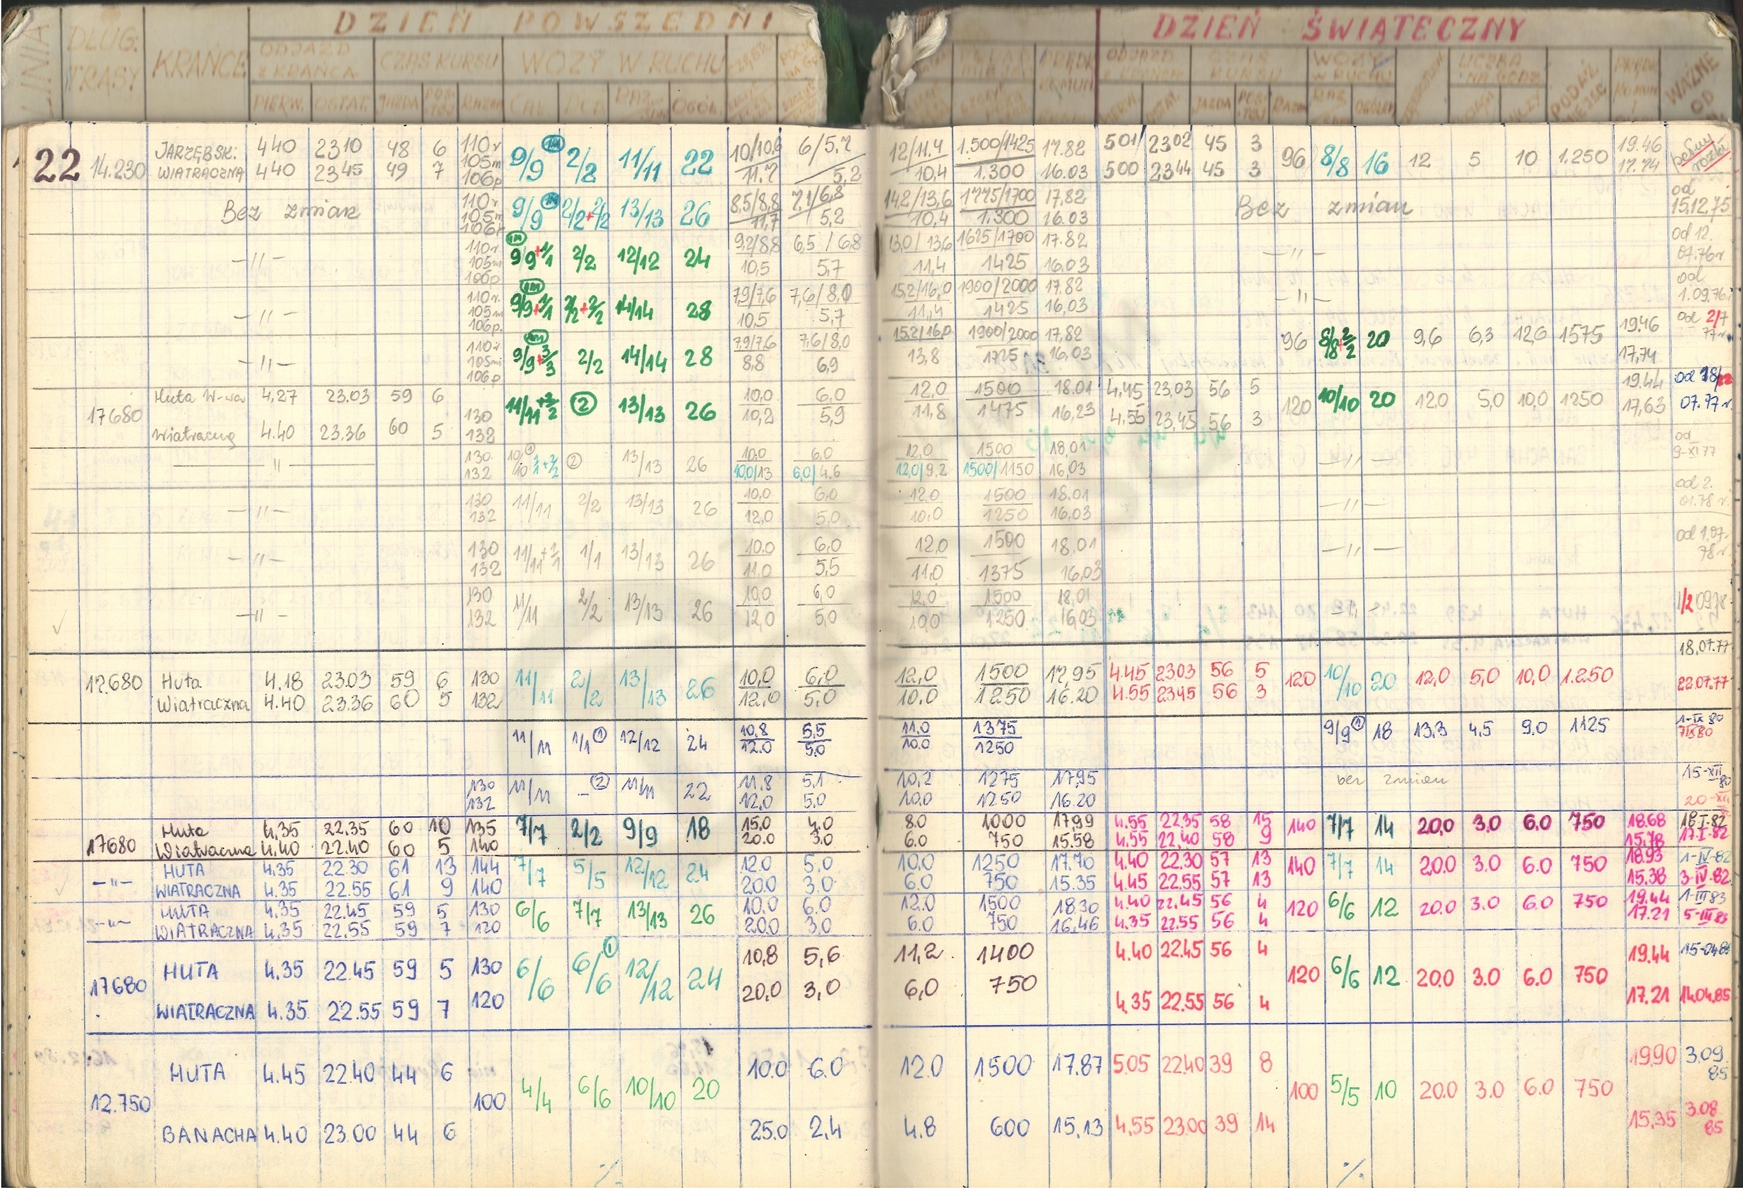 DZIEŃ POWSZEDNI DZIEŃ ŚWIĄTECZNY
LINIA DŁUG. TRASY KRAŃCE ODJAZD Z KRAŃCA CZAS KURSU WOZY W RUCHU
PIERW. OSTAT. JAZDA RAZEM CAŁ. DOD. RAZ. OGÓŁ. JAZDA RAZEM OGÓŁEM WAŻNE OD
22 14.230 JARZĘBSK. 4 40 23 10 48 6 110r 9/9 2/2 11/11 22 10/10,6 6/5.7 12/11.4 1.500/1425 17.82 501 23 02 45 3 96 8/8 16 12 5 10 1.250 19.46
WIATRACZNA 4 40 23 45 49 7 105m 106p 11.7 5.2 10,4 1.300 16.03 500 23 44 45 3 17.74
Bez zmian 110r 105m 106p 9/9 2/2+2/2 13/13 26 8.5/8,8 7.1/6,8 14.2/13,6 1775/1700 17,82 Bez zmian od 15.12.75
11,7 5.2 10,4 1.300 16.03
—〃— 110r 105m 106p 9/9+1/1 2/2 12/12 24 9,2/8,8 6,5/6,8 13,0/13,6 1625/1700 17.82 —〃— od 12.
10,5 5,7 11,4 1425 16,03 07.76r
—〃— 110r. 105m 106p. 9/9+1/1 2/2+2/2 14/14 28 7,9/7,6 7,6/8,0 15,2/16,0 1900/2000 17.82 —〃— od 1.09.76r
10,5 5,7 11,4 1425 16,03
—〃— 110r 105m 106p 9/9+3/3 2/2 14/14 28 7,9/7,6 7.6/8.0 15.2/16,0 1900/2000 17,82 96 8/8+2/2 20 9,6 6,3 12,6 1575 19.46 od 2/7 77r.
8,8 6,9 13,8 1725 16,03 17,74
17680 Huta W-wa 4,27 23.03 59 6 130 11/11+2/2 2 13/13 26 10,0 6,0 12.0 1500 18.01 4,45 23.03 56 5 120 10/10 20 12,0 5,0 10,0 1250 19.44 od 18/
Wiatraczną 4.40 23.36 60 5 132 10,2 5,9 11,8 1475 16,23 4,55 23,45 56 3 17,63 07.77r.
—〃— 130 132 10/10+2/2 2 13/13 26 10,0 6,0 12,0 1500 18,01 —〃— od 9-XI 77
10,0/13 6,0/4.6 12,0/9.2 1500/1150 16,03
—〃— 130 132 11/11 2/2 13/13 26 10,0 6,0 12.0 1500 18.01 —〃— od 2.
12,0 5,0 10,0 1250 16,03 01.78r.
—〃— 130 132 11/11+1/1 1/1 13/13 26 10.0 6,0 12,0 1500 18,01 —〃— od 1.07.
11,0 5,5 11,0 1375 16,03 78r.
—〃— 130 132 11/11 2/2 13/13 26 10,0 6,0 12,0 1500 18,01 —〃— 1/2 0978
12,0 5,0 10,0 1250 16,03
18,07.77
17.680 Huta 4.18 23.03 59 6 130 11/11 2/2 13/13 26 10,0 6,0 12,0 1500 17,95 4.45 23.03 56 5 120 10/10 20 12,0 5,0 10,0 1.250 22.07.77
Wiatraczna 4.40 23.36 60 5 132 12,0 5,0 10,0 1250 16.20 4.55 23.45 56 3
11/11 1/1 1 12/12 24 10,8 5,5 11,0 1375 9/9 1 18 13,3 4,5 9,0 1125 1-IX 80
12.0 5,0 10.0 1250
130 11/11 — 2 11/11 22 11,8 5,1 10,2 1275 17,95 bez zmian 15-XII 80
132 12,0 5,0 10,0 1250 16.20 20-XII
17680 Huta 4,35 22.35 60 10 135 7/7 2/2 9/9 18 15.0 4.0 8.0 1000 17,99 4.55 22.35 58 15 140 7/7 14 20.0 3.0 6.0 750 18.68 18.I-82
Wiatraczna 4,40 22.40 60 5 140 20.0 3.0 6.0 750 15.58 4.55 22.40 58 9 15,78 17.I-82
—〃— HUTA 4.35 22.30 61 13 144 7/7 5/5 12/12 24 12.0 5.0 10.0 1250 17.70 4.40 22.30 57 13 140 7/7 14 20.0 3.0 6.0 750 18.93 1-IV-82
WIATRACZNA 4.35 22.55 61 9 140 20.0 3.0 6.0 750 15.35 4.45 22.55 57 13 15.38 3-IV-82
—〃— HUTA 4.35 22.45 59 5 130 6/6 7/7 13/13 26 10.0 6.0 12.0 1500 18.30 4.40 22.45 56 4 120 6/6 12 20.0 3.0 6.0 750 19.44 1-III 83
WIATRACZNA 4.35 22.55 59 7 120 20.0 3.0 6.0 750 16,46 4.35 22.55 56 4 17.21 5-III 83
17680 HUTA 4.35 22.45 59 5 130 6/6 6/6 1 12/12 24 10,8 5,6 11,2 1400 4.40 22.45 56 4 120 6/6 12 20.0 3.0 6.0 750 19.44 15-04 85
WIATRACZNA 4.35 22.55 59 7 120 20,0 3,0 6,0 750 4,35 22.55 56 4 17.21 14.04.85
12.750 HUTA 4.45 22.40 44 6 100 4/4 6/6 10/10 20 10.0 6.0 12.0 1500 17.87 5.05 22.40 39 8 100 5/5 10 20.0 3.0 6.0 750 19.90 3.09. 85
BANACHA 4.40 23.00 44 6 25.0 2,4 4.8 600 15,13 4.55 23.00 39 14 15,35 3.08. 85